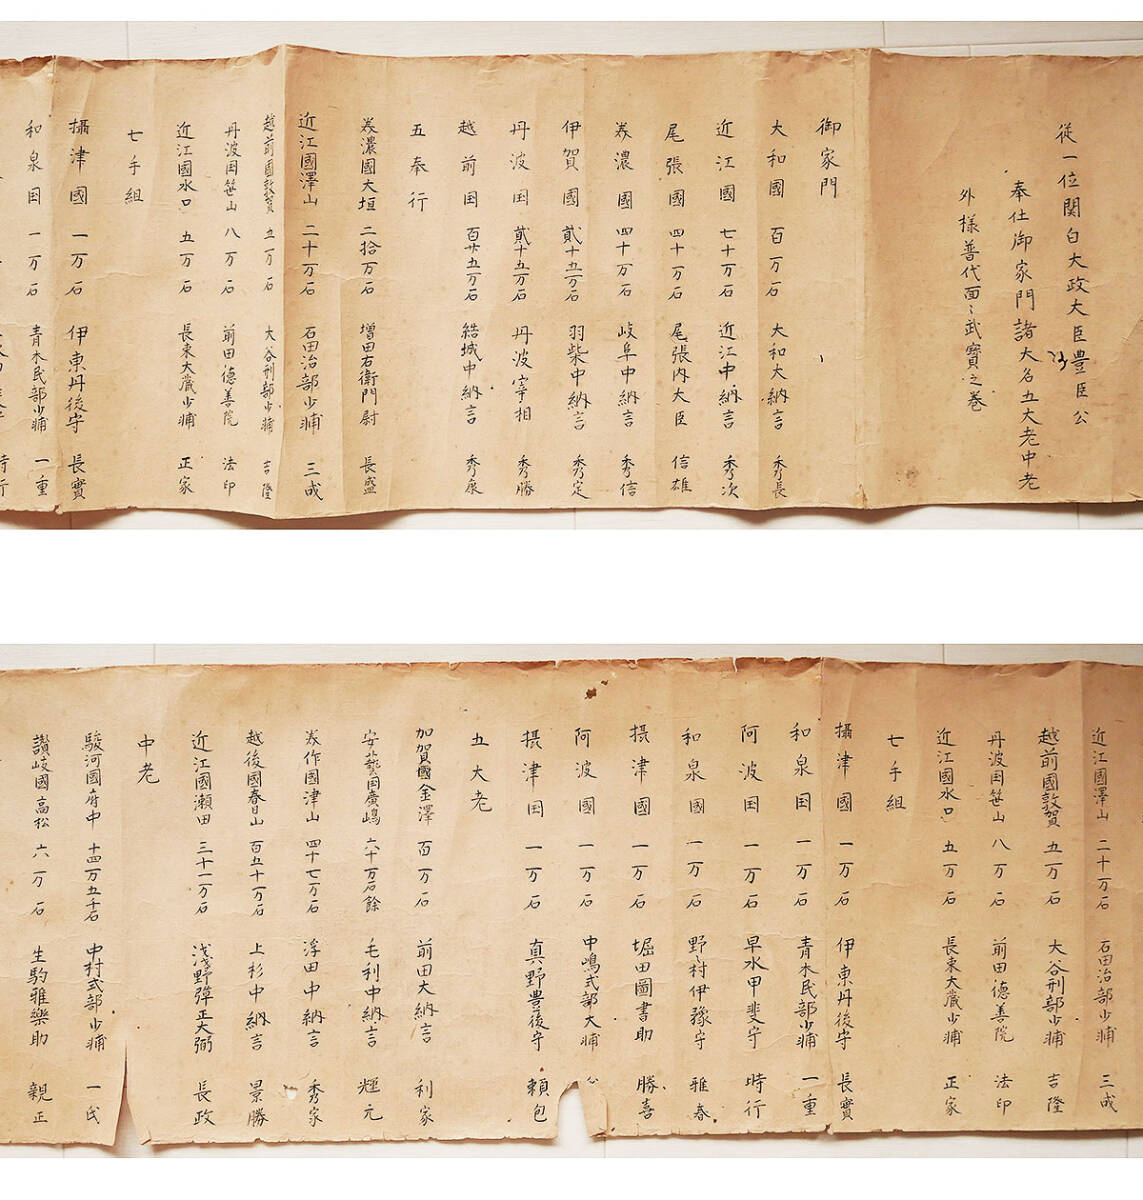 従一位関白大政大臣豊臣公
奉仕御家門諸大名五大老中老
外様普代面〻武寶之巻
御家門
大和國 百万石 大和大納言 秀長
近江國 七十万石 近江中納言 秀次
尾張國 四十万石 尾張内大臣 信雄
美濃國 四十万石 岐阜中納言 秀信
伊賀國 貳十五万石 羽柴中納言 秀定
丹波国 貳十五万石 丹波宰相 秀勝
越前国 百廿五万石 結城中納言 秀康
五奉行
美濃國大垣 二拾万石 増田右衛門尉 長盛
近江國澤山 二十万石 石田治部少浦 三成
越前國敦賀 五万石 大谷刑部少浦 吉隆
丹波国笹山 八万石 前田徳善院 法印
近江國水口 五万石 長束大蔵少浦 正家
七手組
攝津國 一万石 伊東丹後守 長實
和泉国 一万石 青木民部少浦 一重
時行
近江國澤山 二十万石 石田治部少浦 三成
越前國敦賀 五万石 大谷刑部少浦 吉隆
丹波国笹山 八万石 前田徳善院 法印
近江國水口 五万石 長束大蔵少浦 正家
七手組
攝津國 一万石 伊東丹後守 長實
和泉国 一万石 青木民部少浦 一重
阿波国 一万石 早水甲斐守 時行
和泉國 一万石 野〻村伊豫守 雅春
摂津國 一万石 堀田圖書助 勝喜
阿波國 一万石 中嶋式部大浦
摂津国 一万石 真野豊後守 頼包
五大老
加賀國金澤 百万石 前田大納言 利家
安藝国廣嶋 六十万石餘 毛利中納言 輝元
美作國津山 四十七万石 浮田中納言 秀家
越後國春山 百五十万石 上杉中納言 景勝
近江國瀬田 三十一万石 浅野弾正大弼 長政
中老
駿河國府中 十四万五千石 中村式部少浦 一氏
讃岐國高松 六万石 生駒雅樂助 親正